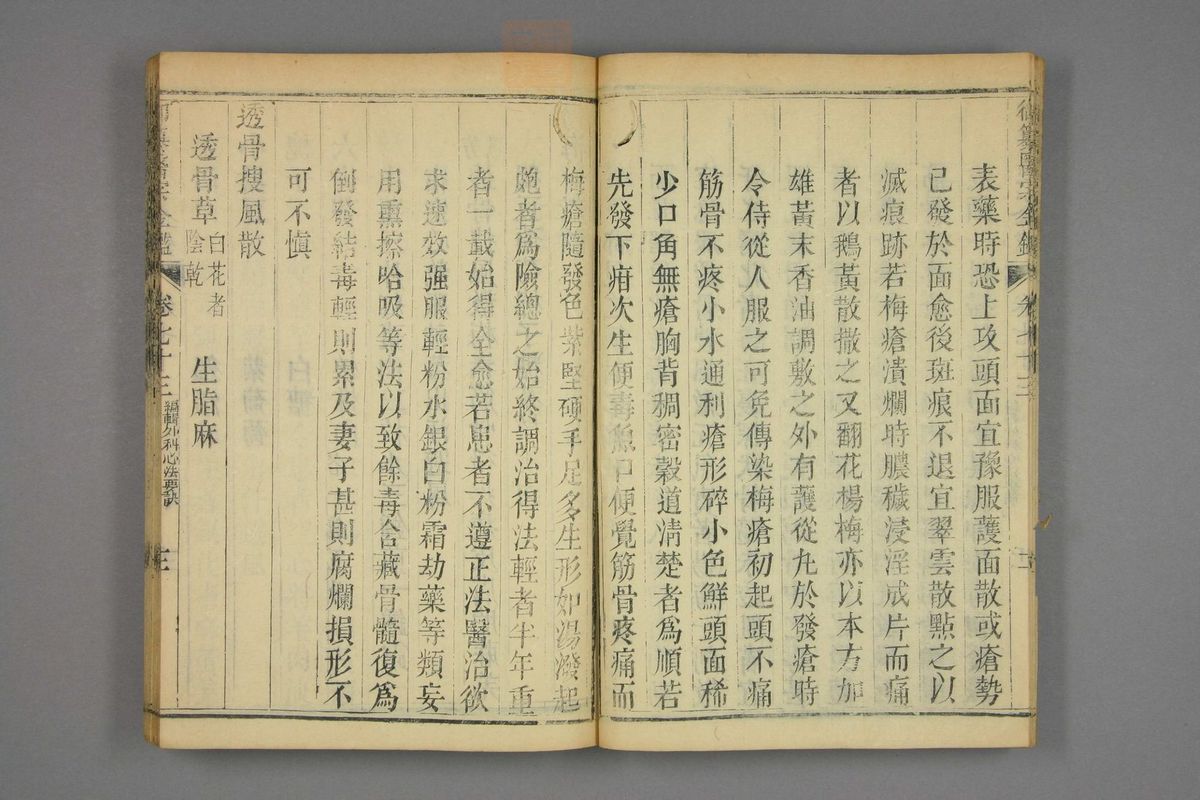 表藥時恐上攻頭面宜豫服護面散或瘡勢
已發於面愈後斑痕不退宜翠雲散點之以
滅痕跡若梅瘡潰爛時膿穢浸淫成片而痛
者以鵝黃散撒之又翻花楊梅亦以本方加
雄黃末香油調敷之外有護從丸於發瘡時
令侍從人服之可免傳染梅瘡初起頭不痛
筋骨不疼小水通利瘡形碎小色鮮頭面稀
少口角無瘡胸背稠密穀道清楚者爲順若
先發下疳次生便毒魚口便覺筋骨疼痛而
梅瘡隨發色紫堅硬手足多生形如湯潑起
皰者爲險總之始終調治得法輕者半年重
者一載始得全愈若患者不遵正法醫治欲
求速效强服輕粉水銀白粉霜劫藥等類妄
用熏擦哈吸等法以致餘毒含藏骨髓復爲
倒發結毒輕則累及妻子甚則腐爛損形不
可不慎
透骨搜風散
透骨草 白花者陰乾 生脂麻
卷七十三 編輯外科心法要訣